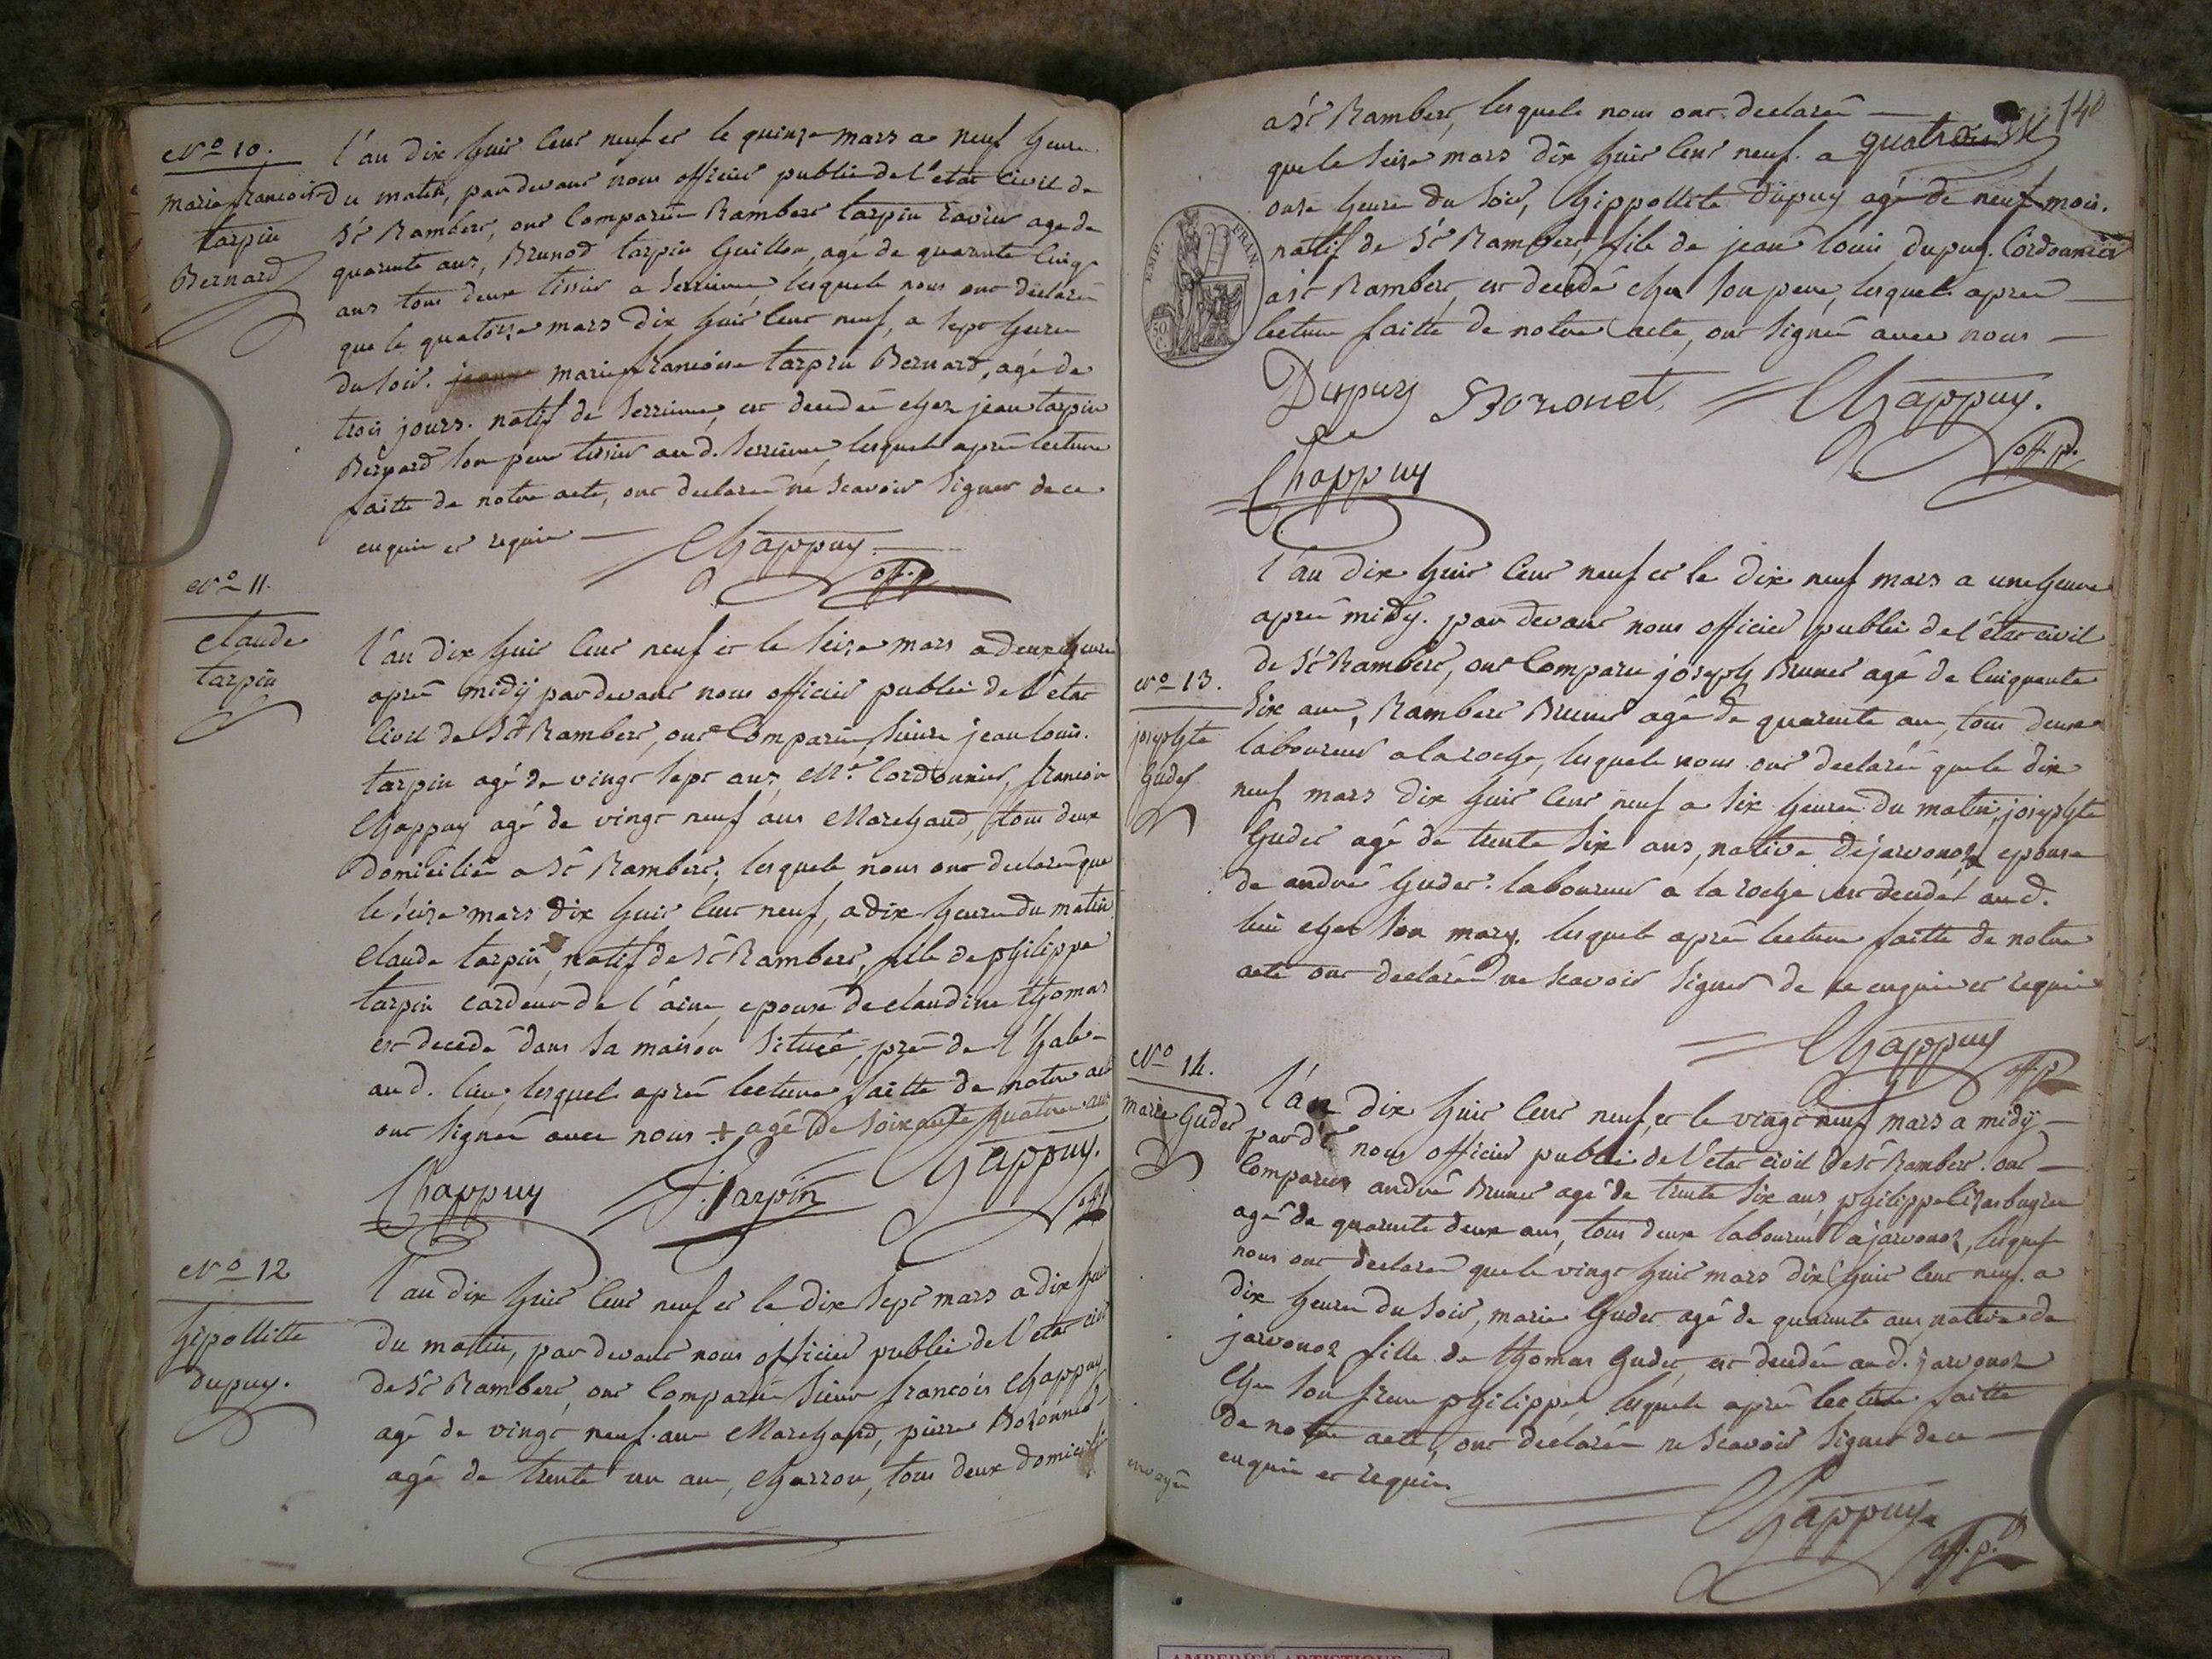 N.o 10.
marie francoise
tarpin
Bernard
l'an dix huit cent neuf et le quinze mars a neuf heures
du matin, pardevant nous officier public de l'etat civil de
St Rambert, ont comparu Rambert tarpin ravier agé de
quarante ans, Brunod tarpin Guillon, agé de quarante cinq
ans tous deux tissier a serrieres, lesquels nous ont declaré
que le quatorze mars dix huit cent neuf, a sept heures
du soir. marie francoise tarpin Bernard, agé de
trois jours. natif de serrieres, est decedée chez jean tarpin
Bernard son pere tissier aud. serrieres, lesquels après lecture
faitte de notre acte, ont declaré ne scavoir signer de ce
enquis et requis
Chappuy
off. p.
N.o 11.
claude
tarpin
l'an dix huit cent neuf et le seize mars a deux heures
après midÿ pardevant nous officier public de l'etat
civil de St Rambert, ont comparu, sieurs jean louis.
tarpin agé de vingt sept ans, Md. Cordonnier, francois
Chappuy agé de vingt neuf ans Marchand, tous deux
domiciliés a St Rambert, lesquels nous ont declaré que
le seize mars dix huit cent neuf, a dix heures du matin
claude tarpin natif de St Rambert, fils de philippe
tarpin cardeur de laine, epoux de claudine thomas
est decedé dans sa maison située près de l'hale
aud. lieu, lesquels après lecture faitte de notre acte
ont signé avec nous + agé de soixante quatre ans
Chappuy J. Tarpin Chappuy.
off. p.
N.o 12
hipollitte
dupuy.
l'an dix huit cent neuf et le dix sept mars a dix heures
du matin, pardevant nous officier public de l'etat civil
de St Rambert, ont comparu sieur francois Chappuy
agé de vingt neuf ans Marchand, pierre Bozonnet
agé de trente un ans, charron, tous deux domiciliés
140
a St Rambert, lesquels nous ont declaré
que le seize mars dix huit cent neuf. a
onze heures du soir, hippollite dupuy agé de neuf mois.
natif de St Rambert, fils de jean louis dupuy. Cordonnier
a St Rambert, est decedé chez son pere, lesquels après
lecture faitte de notre acte, ont signé avec nous
EMP. FRAN.
50 C.
Dupuy Bozonet Chappuy.
off. p.
Chappuy
N.o 13.
josephte
Gudet
l'an dix huit cent neuf et le dix neuf mars a une heure
après midÿ. par devant nous officier public de l'état civil
de St Rambert, ont comparu joseph Brunet agé de cinquante
six ans, Rambert Brunet agé de quarante ans, tous deux
laboureur a la roche, lesquels nous ont declaré que le dix
neuf mars dix huit cent neuf a six heures du matin, josephte
Gudet agé de trente six ans, native de jarvonoz epouse
de andré Gudet. laboureur a la roche est decedé aud.
lieu chez son mary. lesquels après lecture faitte de notre
acte ont declaré ne scavoir signer de ce enquis et requis
Chappuy
off. p.
N.o 14.
marie Gudet
l'an dix huit cent neuf, et le vingt neuf mars a midÿ
pard.t nous officier public de l'etat civil de St Rambert. ont
comparus andré Brunet agé de trente six ans, philippe
agé de quarante deux ans, tous deux laboureur a jarvonoz, lesquels
nous ont declaré que le vingt huit mars dix huit cent neuf. a
dix heures du soir, marie Gudet agé de quarante ans, native de
jarvonoz fille de thomas Gudet, est decedée aud. jarvonoz
chez son frere philippe, lesquels après lecture faitte
de notre acte, ont declaré ne scavoir signer de ce
enquis et requis
Chappuy
off. p.
AMBERIEU ARTISTIQUE